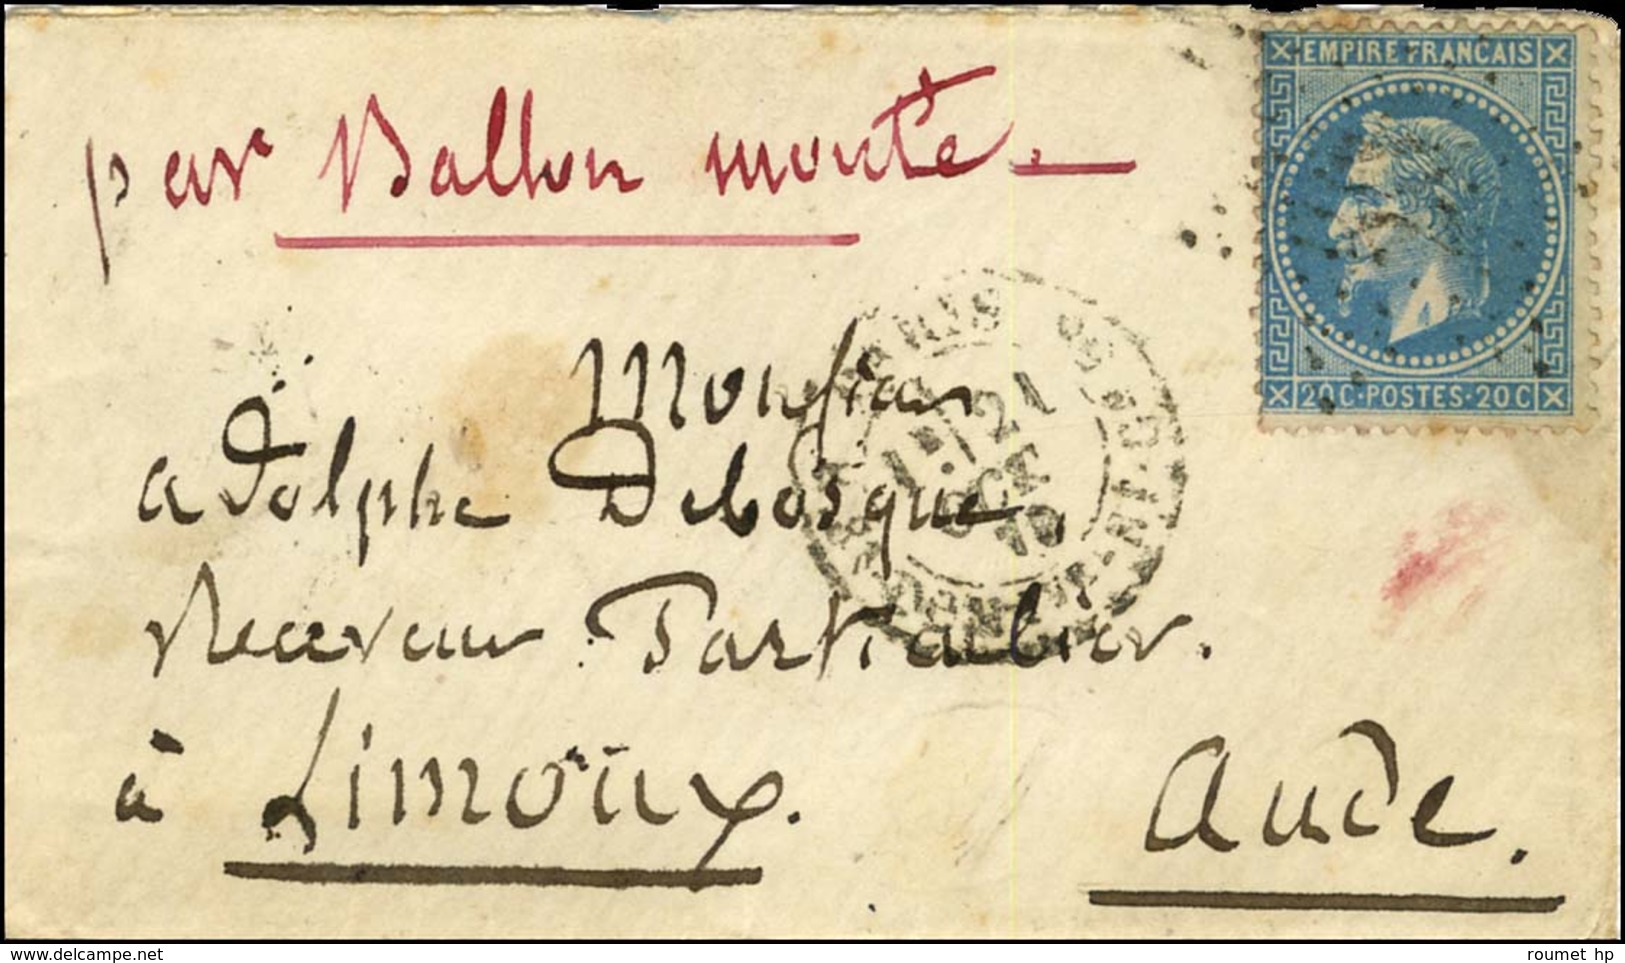 par Ballon monté
EMPIRE FRANCAIS
20C·POSTES·20C
PARIS
21
OCT
70
Monsieur
adolphe Debosque,
Receveur Particulier.
à Limoux.
Aude.
www.delcampe.net
roumet hp